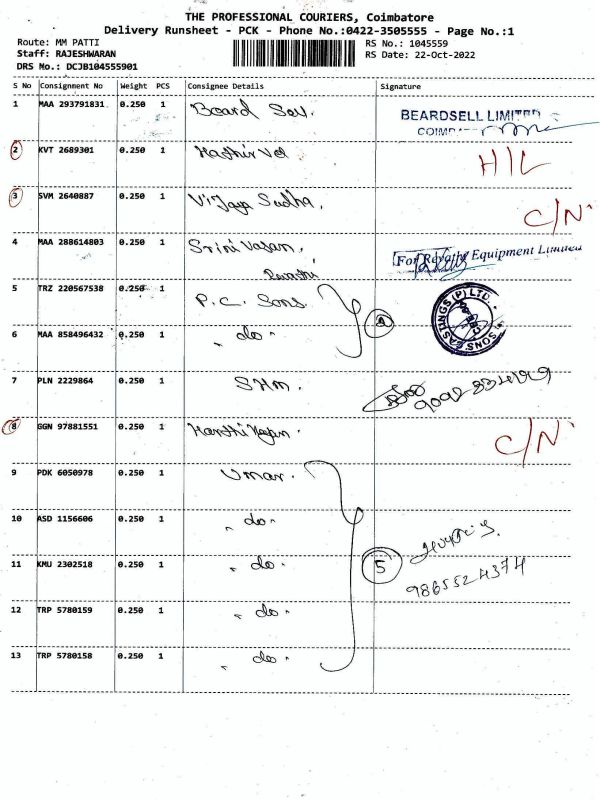 THE PROFESSIONAL COURIERS, Coimbatore
Delivery Runsheet - PCK - Phone No.:0422-3505555 - Page No.:1
Route: MM PATTI
Staff: RAJESHWARAN
DRS No.: DCJB104555901
RS No.: 1045559
RS Date: 22-Oct-2022
S No Consignment No Weight PCS Consignee Details Signature
1 MAA 293791831 0.250 1 Board Sev.
BEARDSELL LIMITED
2 KVT 2689301 0.250 1 H/L
3 SVM 2640887 0.250 1 Vijaya Sudha, C/N
4 MAA 288614803 0.250 1 Srini Vasan,
For Revathi Equipment Limited
5 TRZ 220567538 0.250 1 P.C. Sons.
6 MAA 858496432 0.250 1 " do "
CASTINGS (P) LTD.
7 PLN 2229864 0.250 1 SHM.
8 GGN 97881551 0.250 1 C/N
9 PDK 6050978 0.250 1 Umar.
10 ASD 1156606 0.250 1 " do "
11 KMU 2302518 0.250 1 " do " 5
9865524374
12 TRP 5780159 0.250 1 " do "
13 TRP 5780158 0.250 1 " do "